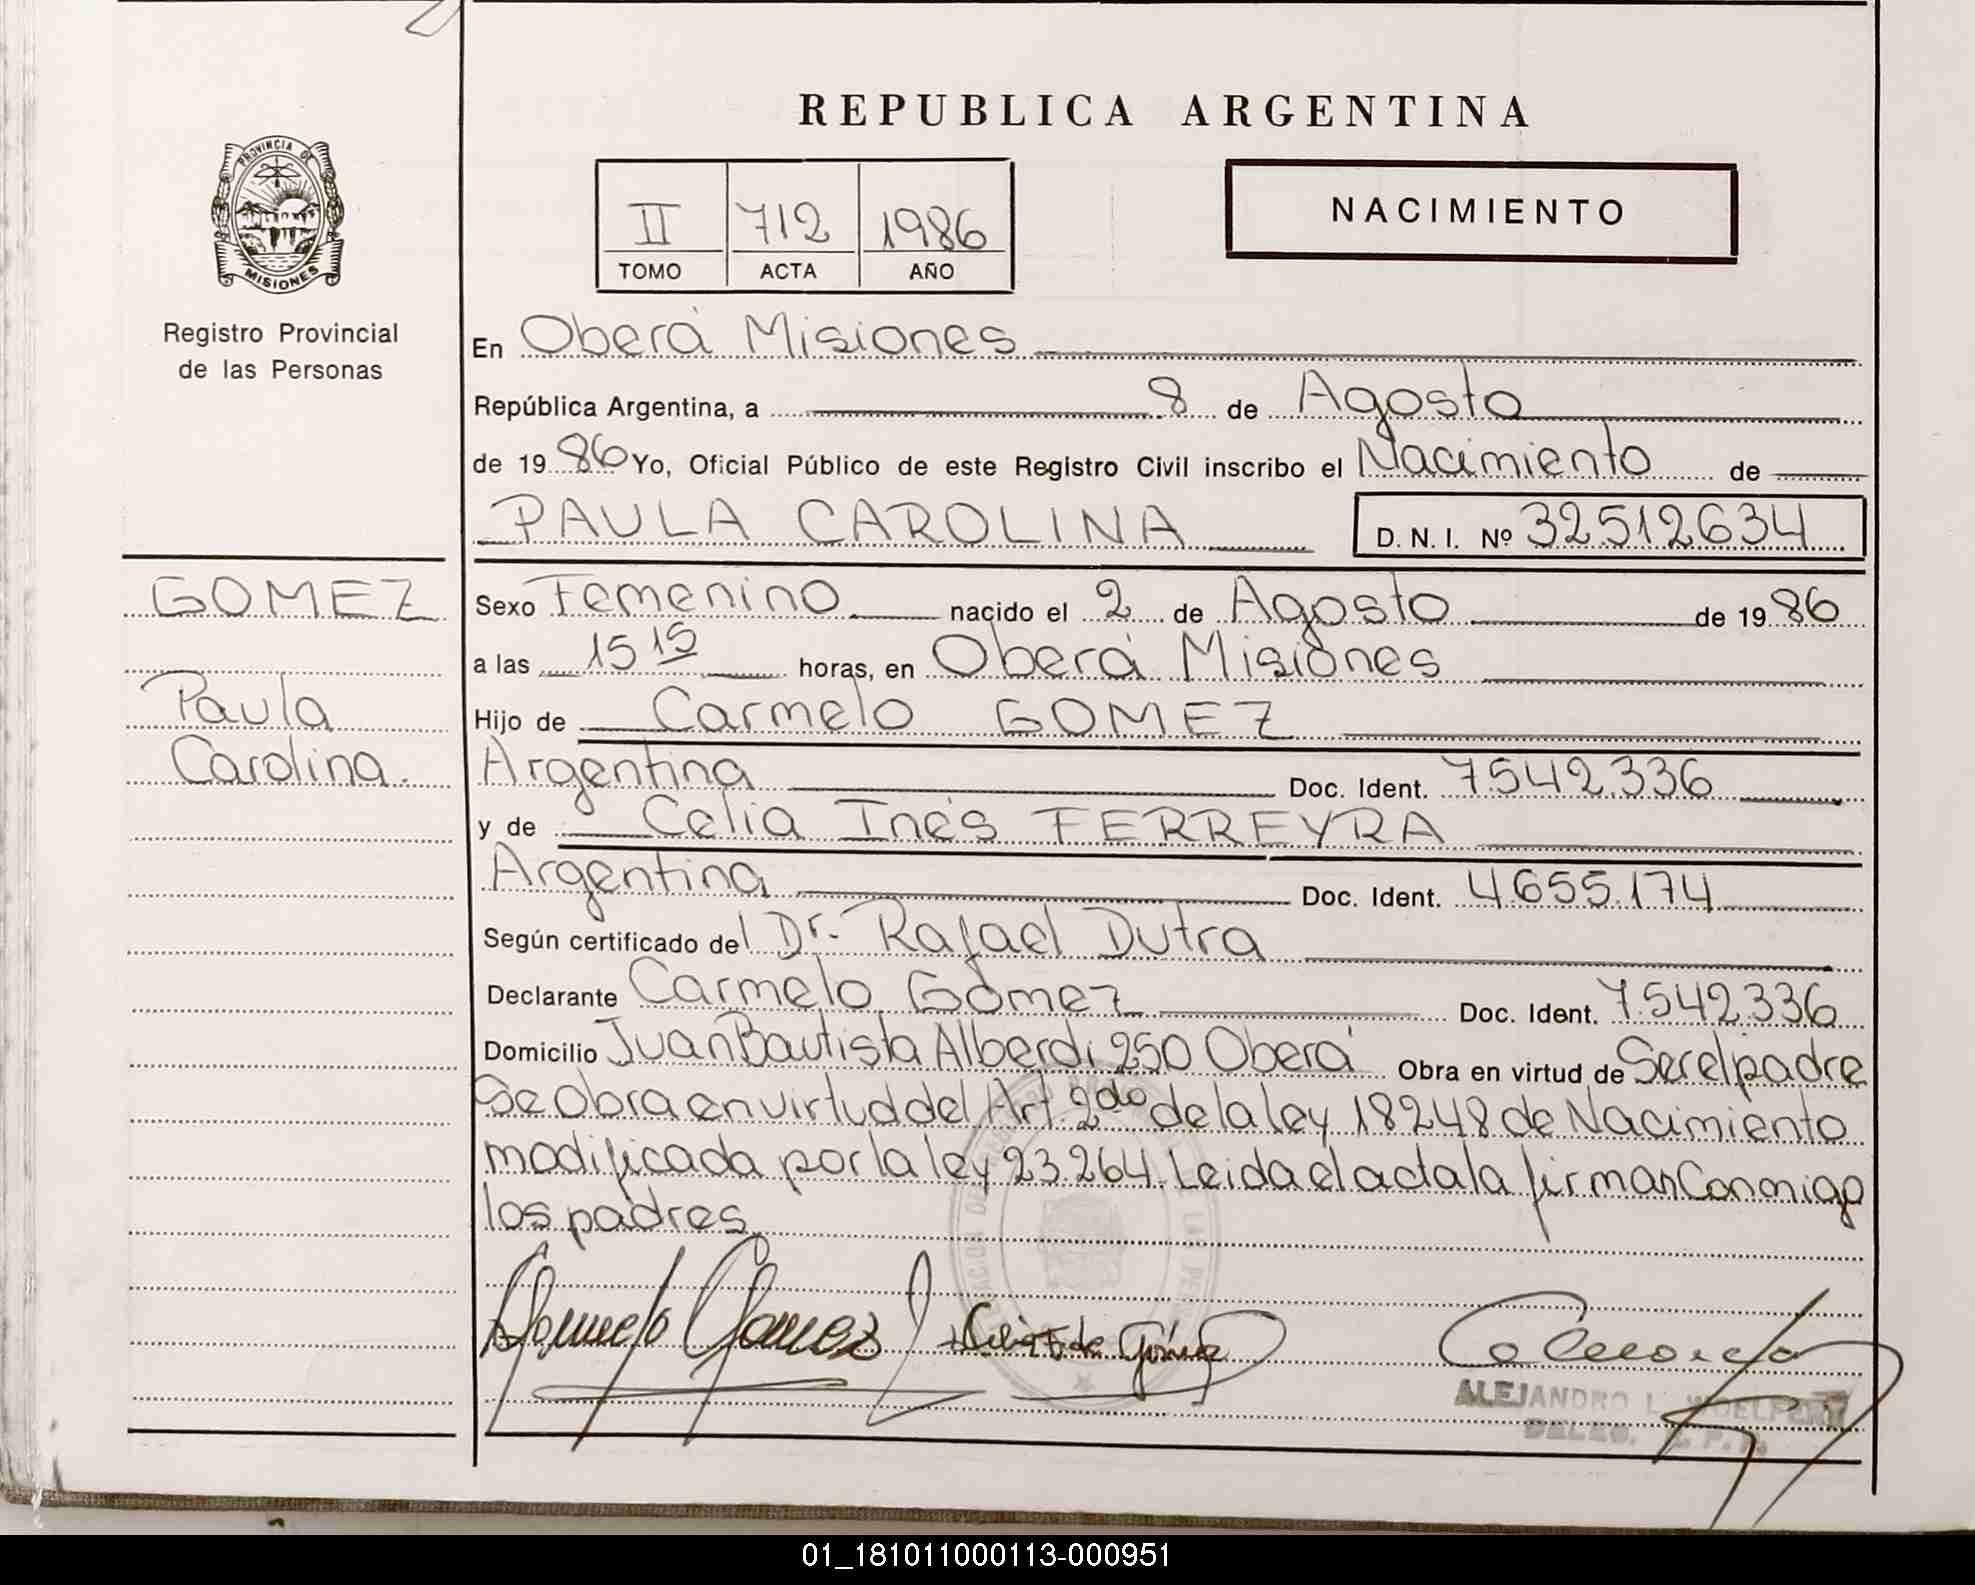 REPUBLICA ARGENTINA
PROVINCIA DE
MISIONES
Registro Provincial
de las Personas
II 712 1986
TOMO ACTA AÑO
NACIMIENTO
En Oberá Misiones
República Argentina, a 8 de Agosto
de 1986 Yo, Oficial Público de este Registro Civil inscribo el Nacimiento de
PAULA CAROLINA D. N. I. Nº 32512634
GOMEZ
Paula
Carolina.
Sexo Femenino nacido el 2 de Agosto de 1986
a las 15 15 horas, en Oberá Misiones
Hijo de Carmelo GOMEZ
Argentina Doc. Ident. 7.542.336
y de Celia Inés FERREYRA
Argentina Doc. Ident. 4.655.174
Según certificado del Dr. Rafael Dutra
Declarante Carmelo Gómez Doc. Ident. 7.542.336
Domicilio Juan Bautista Alberdi 250 Oberá Obra en virtud de Ser el padre
Se Obra en virtud del Art 2do de la ley 18248 de Nacimiento
modificada por la ley 23.264. Leida el acta la firman Conmigo
los padres
Carmelo Gomez
Celia F de Gómez
ALEJANDRO L. WOELFERT
DELEG. R. P. P.
01_181011000113-000951